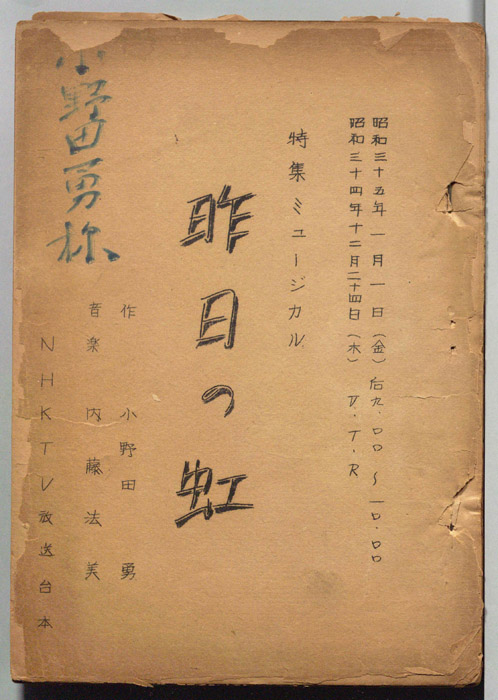 昭和三十五年一月一日(金)后九.00~一0.00
昭和三十四年十二月二十四日(木) V.T.R
特集ミュージカル
昨日の虹
作 小野田 勇
音楽 内藤法美
小野田勇様
NHKTV放送台本